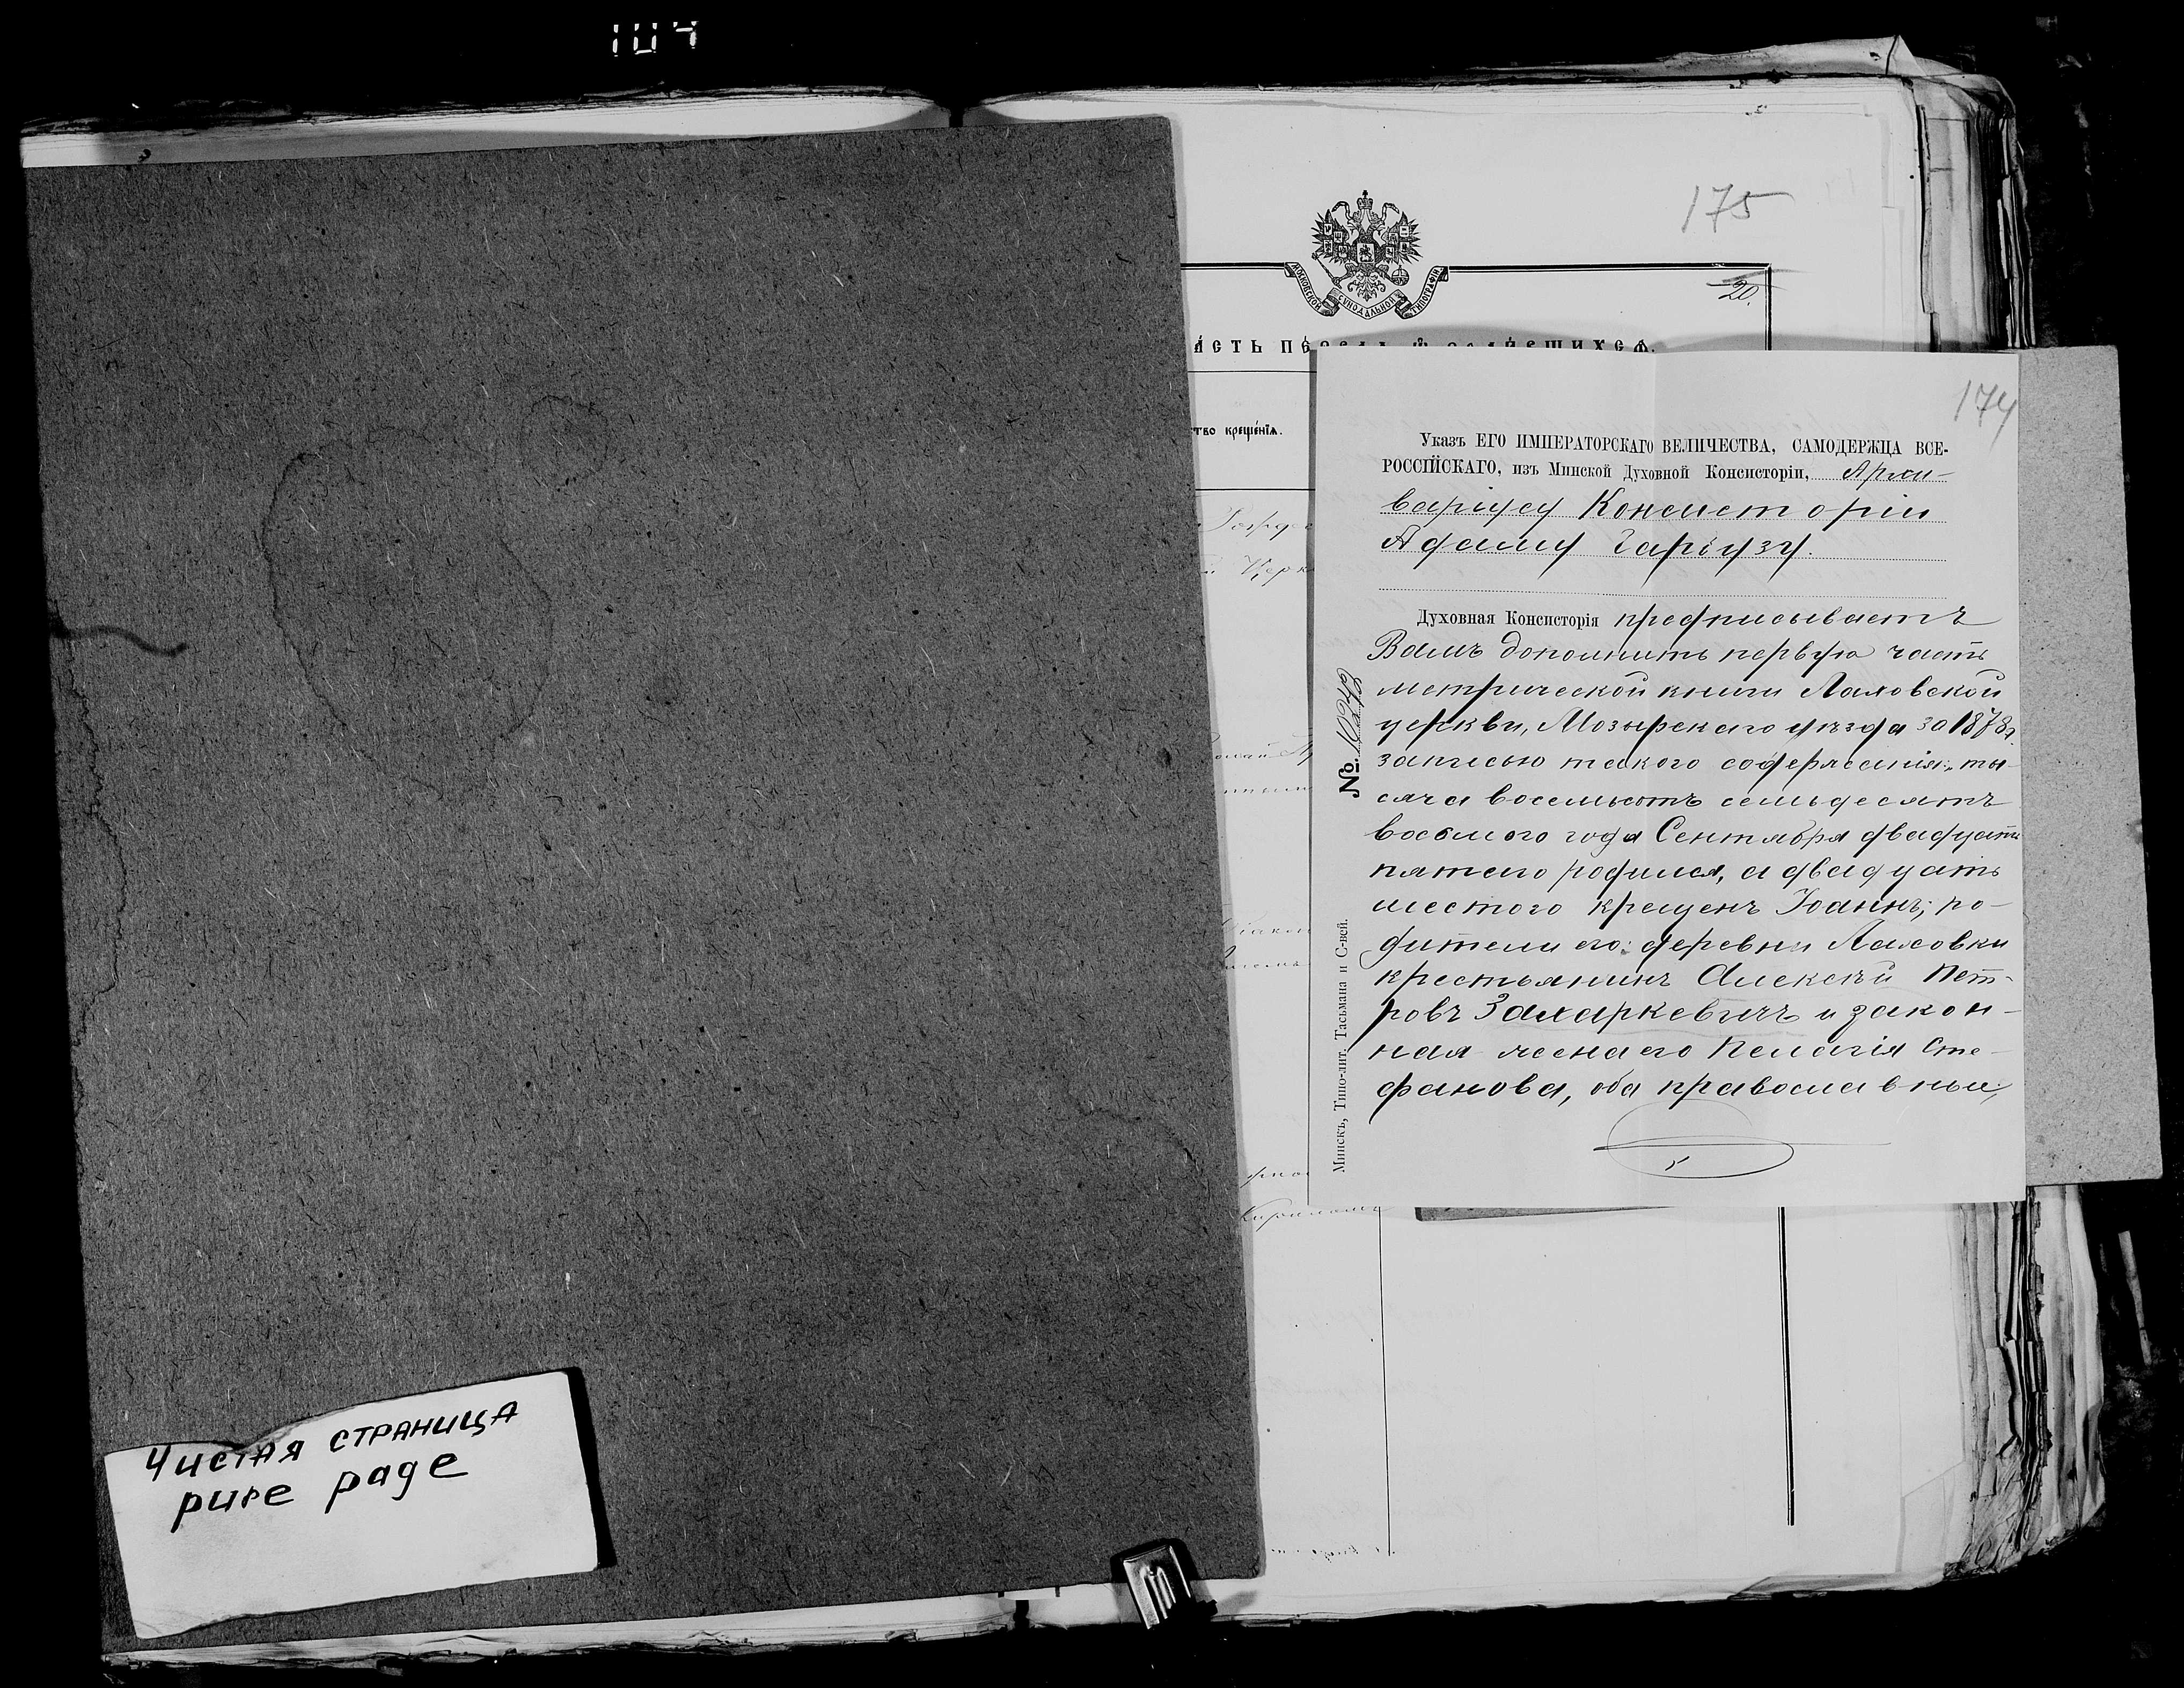 104
175
МОСКОВСКОЙ СУНОДАЛЬНОЙ ТИПОГРАФІИ
20.
тво креще́нїѧ.
174
Указъ ЕГО ИМПЕРАТОРСКАГО ВЕЛИЧЕСТВА, САМОДЕРЖЦА ВСЕ-
РОССІЙСКАГО, изъ Минской Духовной Консисторіи, Архи-
варіусу Консисторіи
Адаму Гаріузу.
Духовная Консисторія предписываетъ
Вамъ дополнить первую часть
метрической книги Лаховской
церкви, Мозырскаго уѣзда за 1878 г.
записью такого содержанія: „ты-
сяча восемьсотъ семьдесятъ
восьмого года Сентября двадцать
пятаго родился, а двадцать
шестого крещенъ Іоаннъ; ро-
дители его: деревни Лаховки
крестьянинъ Алексѣй Пет-
ровъ Захаркевичъ и закон-
ная жена его Пелагія Сте-
фанова, оба православные;
№ 10242
Минскъ, Типо-лит. Тасьмана и С-вей.
Чистая страница
pure page